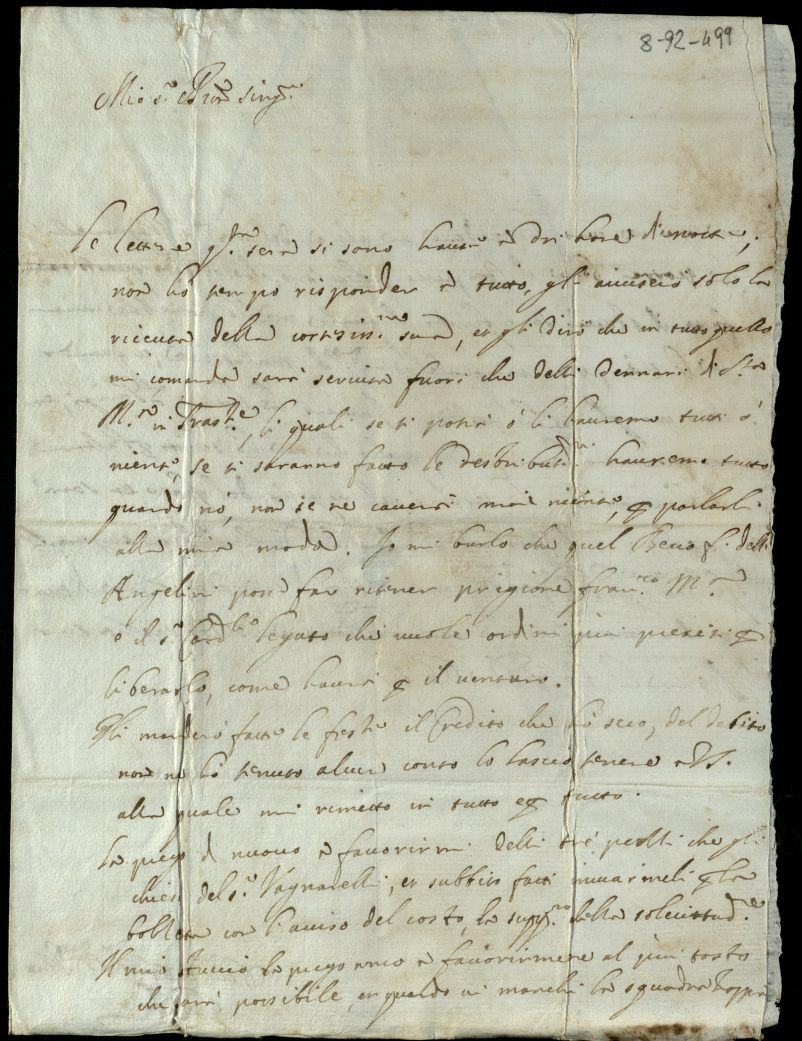 8-92-499
Mio s.r Pron sing.r
le lettere q.ta sera si sono haute à doi hore di notte,
non ho tempo risponder à tutto, gli avviserò solo la
riceuta della cortesiss.ma sua, et gli dirò che in tutto quello
mi comanda sarà servita fuori che delli dennari di S.ta
M.ria in Trast.e, li quali se si potrà ò li hauremo tutti ò
niente, se si saranno fatte le destribut.ni hauremo tutto
quando nò, non se ne caverà mai niente, p parlarli
alla mia moda. Io mi burlo che quel Becco f. delli
Angelini possa far ritener prigione Fran.co M.a
e il s.r Card.le legato che vuole ordini più precisi p
liberarlo, come haurà p il venturo.
Gli manderò fatte le feste il Credito che hò seco, del debito
non ne hò tenuto alcun conto lo lascio tenere à VS.
alla quale mi rimetto in tutto e p tutto.
La prego di nuovo à favorirmi delli tré pezotti che gli
chiesi del s.r Vagnarelli, et subbito fatti inviarmeli p la
bolletta con l'aviso del costo, la supp.co della sollecitud.e
Il mio stuccio la prego anco à favorirmene al più tosto
che sarà possibile, et quando vi manchi la squadra